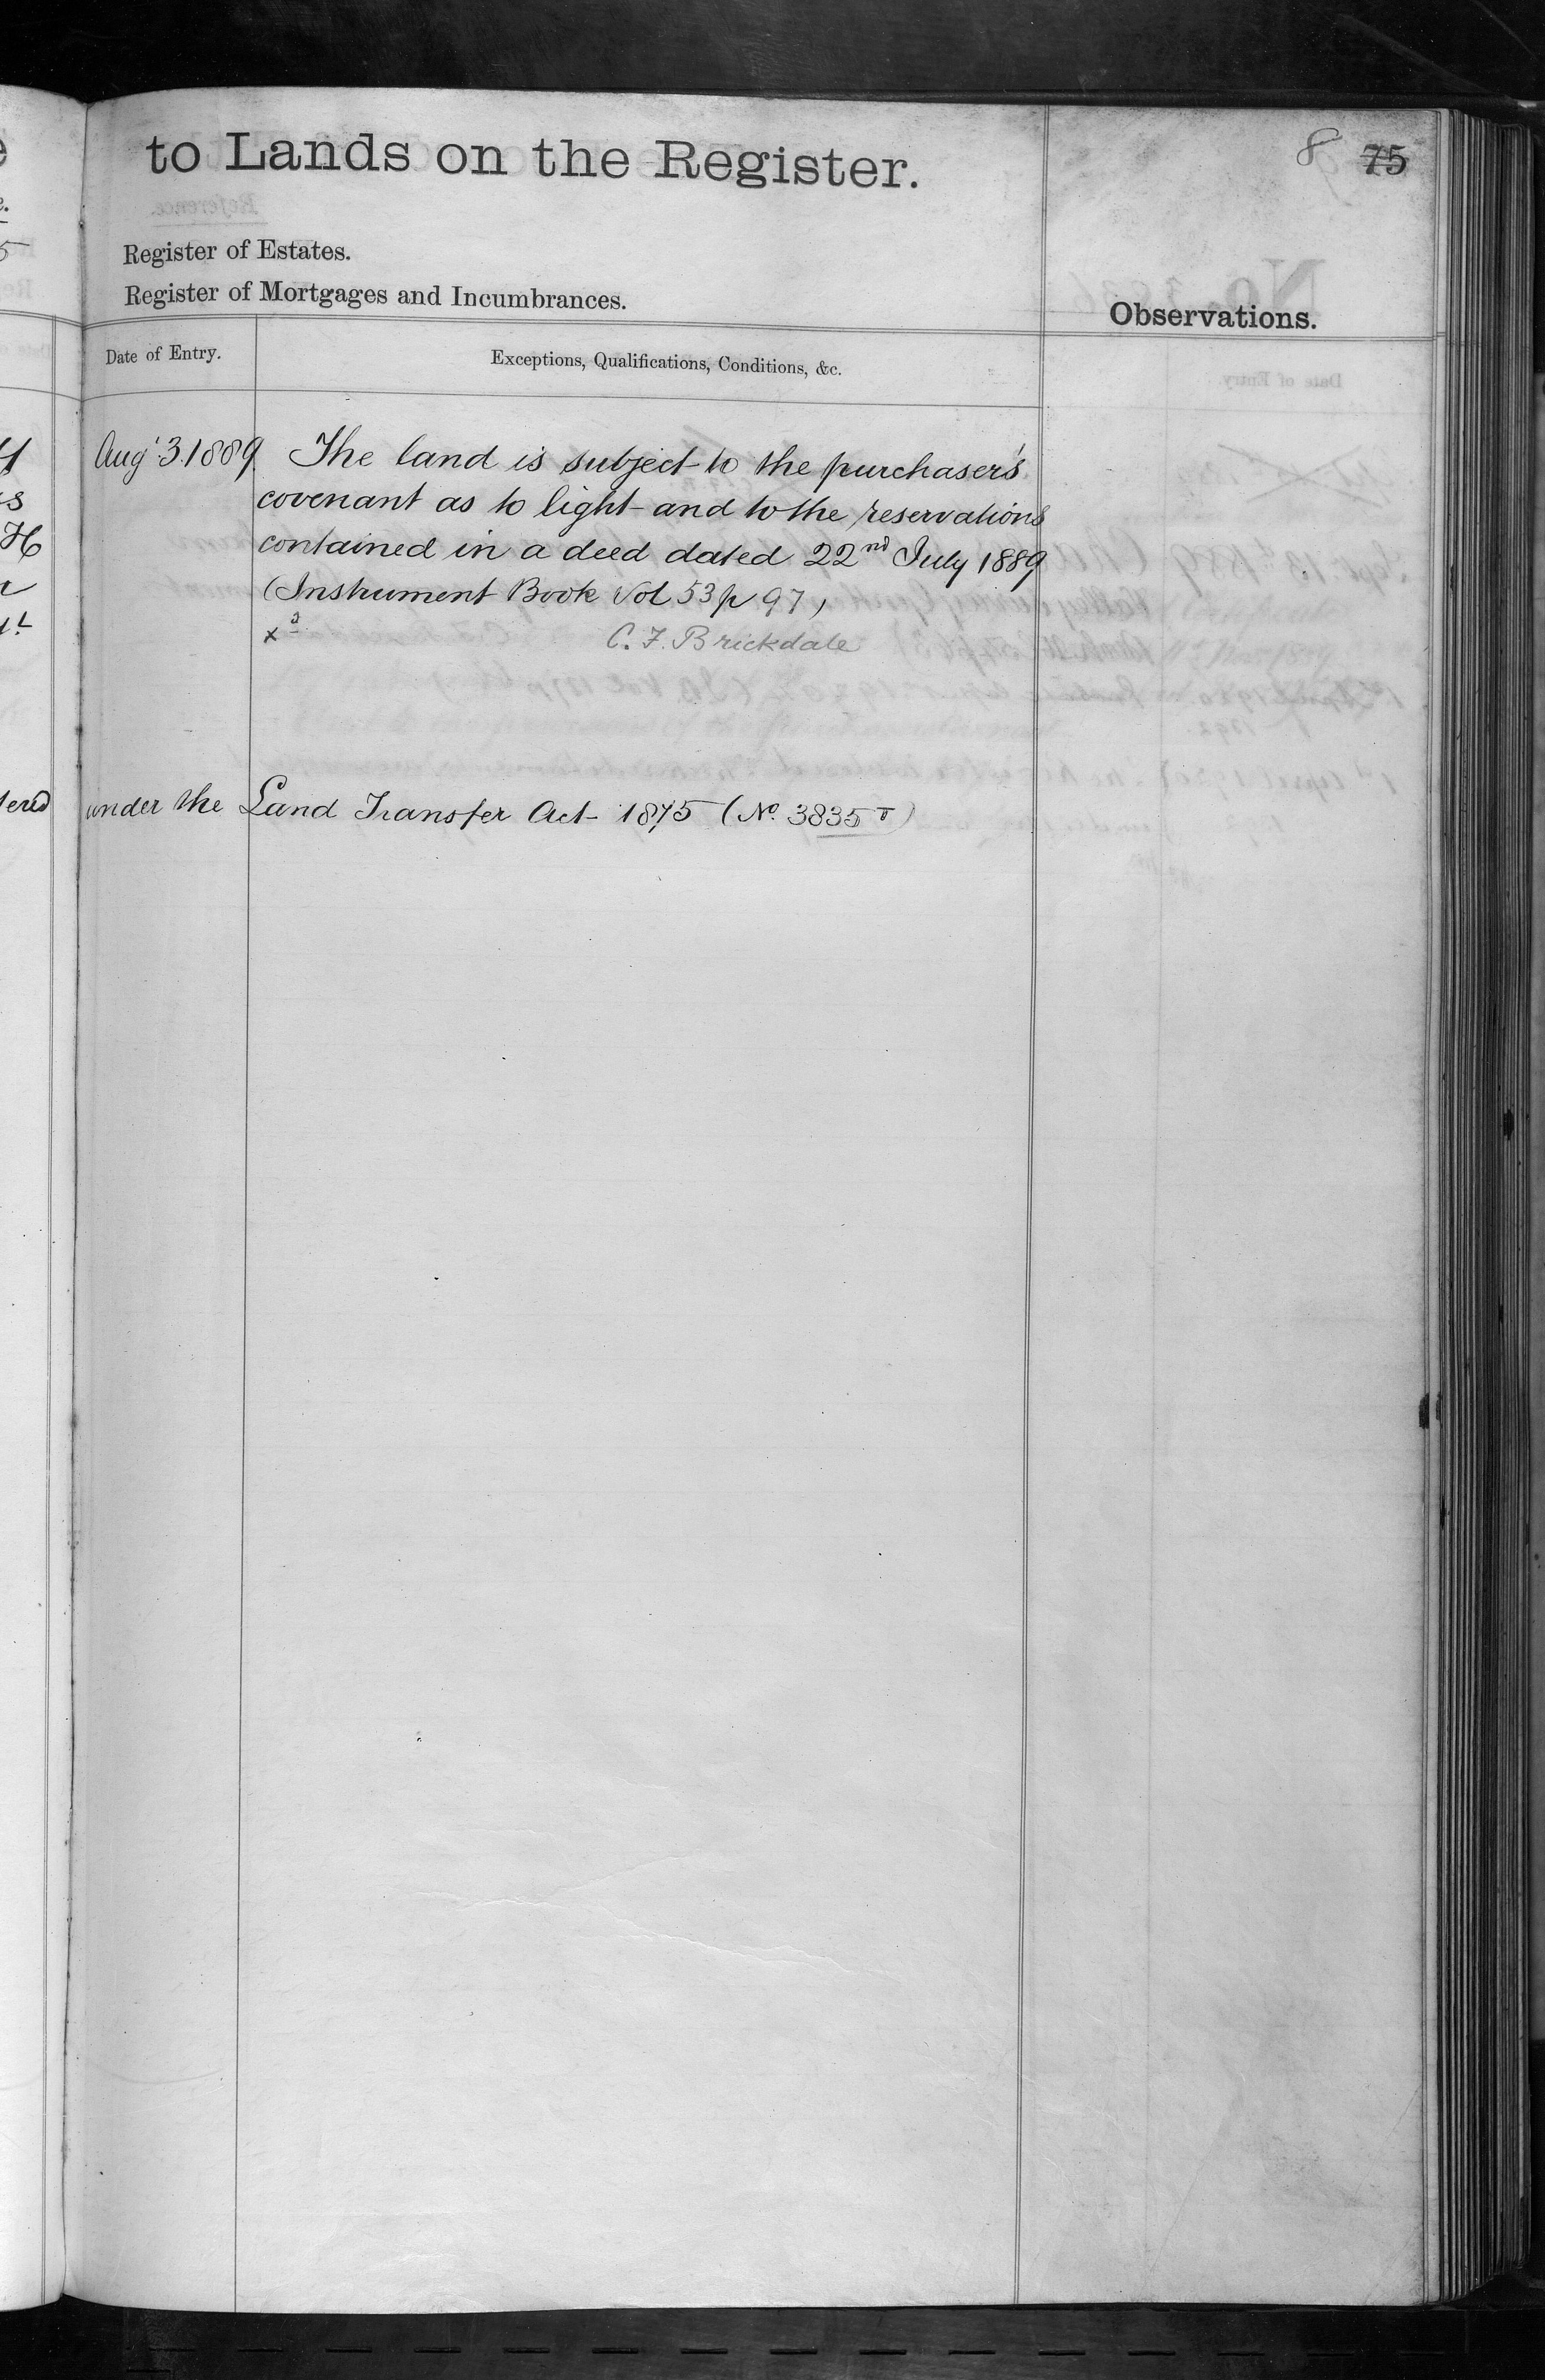 to Lands on the Register.
8 75
Register of Estates.
Register of Mortgages and Incumbrances.
Observations.
Date of Entry.
Exceptions, Qualifications, Conditions, &c.
Aug: 3. 1889 The land is subject to the purchaser's
covenant as to light and to the reservations
contained in a deed dated 22nd July 1889
(Instrument Book Vol 53 p 97,
C. F. Brickdale
under the Land Transfer Act 1875 (No. 3835 T)